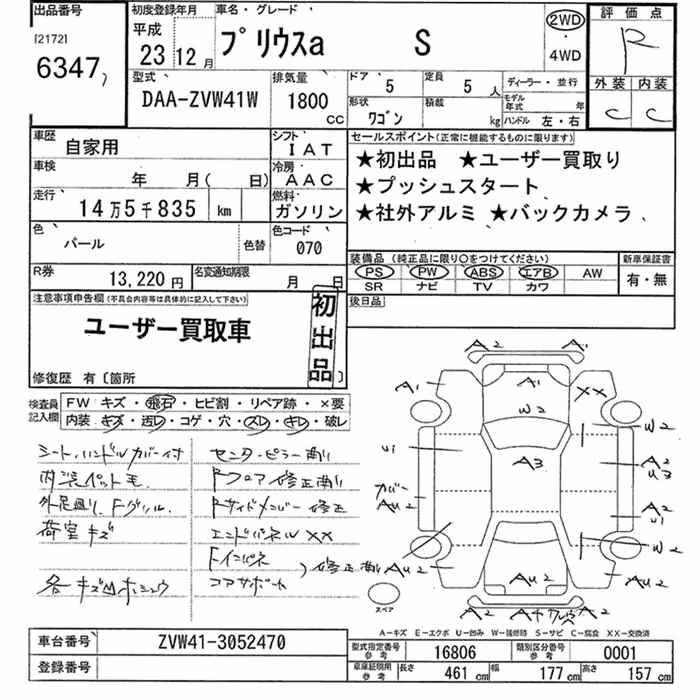 出品番号 初度登録年月 車名・グレード 評価点
[2172] 平成
6347 23 年 12 月 プリウスα S 2WD・4WD R
型式 排気量 ドア 5 定員 5 人 ディーラー・並行 外装 内装
DAA-ZVW41W 1800 cc 形状 ワゴン 積載 kg モデル年式 年 ハンドル 左・右 C C
車歴 自家用 シフト IAT セールスポイント(正常に機能するものに限ります)
車検 年 月( 日) 冷房 AAC ★初出品 ★ユーザー買取り
走行 14万5千835 km 燃料 ガソリン ★プッシュスタート
★社外アルミ ★バックカメラ
色 パール 色替 色コード 070
装備品(純正品に限り○をつけてください) 新車保証書
R券 13,220円 名変通知期限 月 日 PS PW ABS エアB AW 有・無
SR ナビ TV カワ
注意事項申告欄(不具合内容等は具体的に記入して下さい) 初出品 後日品
ユーザー買取車
修復歴 有〔箇所 〕
検査員記入欄 FW キズ・飛石・ヒビ割・リペア跡・×要
内装・キズ・汚レ・コゲ・穴・スレ・キレ・破レ
シート、ハンドルカバー付 センターピラー
内装ペット毛 Rフロア修正
外足廻り、Fグリル、 Rサイドメンバー修正
荷室キズ エンドパネルXX
Fインパネ
各キズ凹ホシュウ コアサポート 修正
A2 A1
A1 A1 XX
W2 W2
U1 A3 A2 U3
カバー AU2 A2 U1
W2
AU2 AU2 A2
スペア
A2 A2
A-キズ E-エクボ U-凹み W-補修跡 S-サビ C-腐食 XX-交換済
車台番号 ZVW41-3052470 型式指定番号 参考 16806 類別区分番号 参考 0001
登録番号 車庫証明用 参考 長さ 461 cm 幅 177 cm 高さ 157 cm